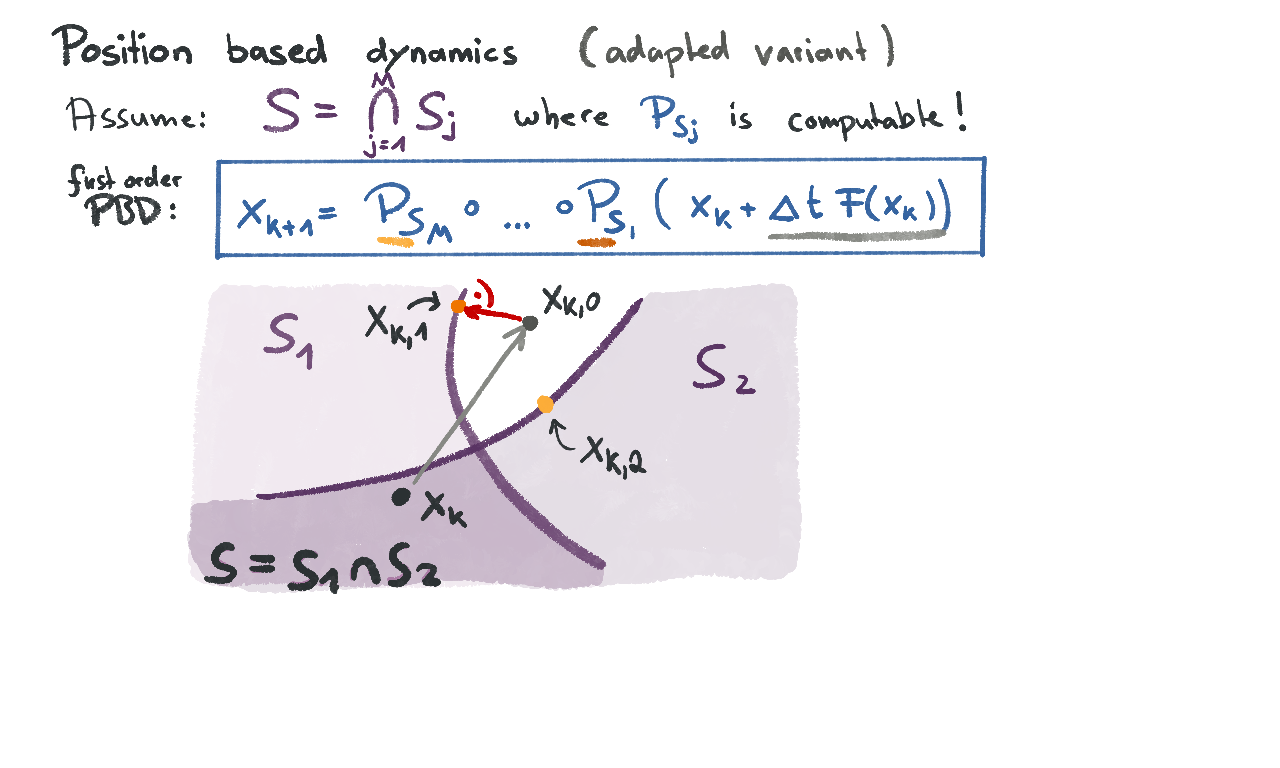 Position based dynamics (adapted variant)
Assume: S = ⋂_{j=1}^{M} S_j where P_{S_j} is computable!
first order
PBD: x_{k+1} = P_{S_M} ∘ ... ∘ P_{S_1} ( x_k + Δt F(x_k))
x_{k,0}
x_{k,1}
S_1
S_2
x_{k,2}
x_k
S = S_1 ∩ S_2